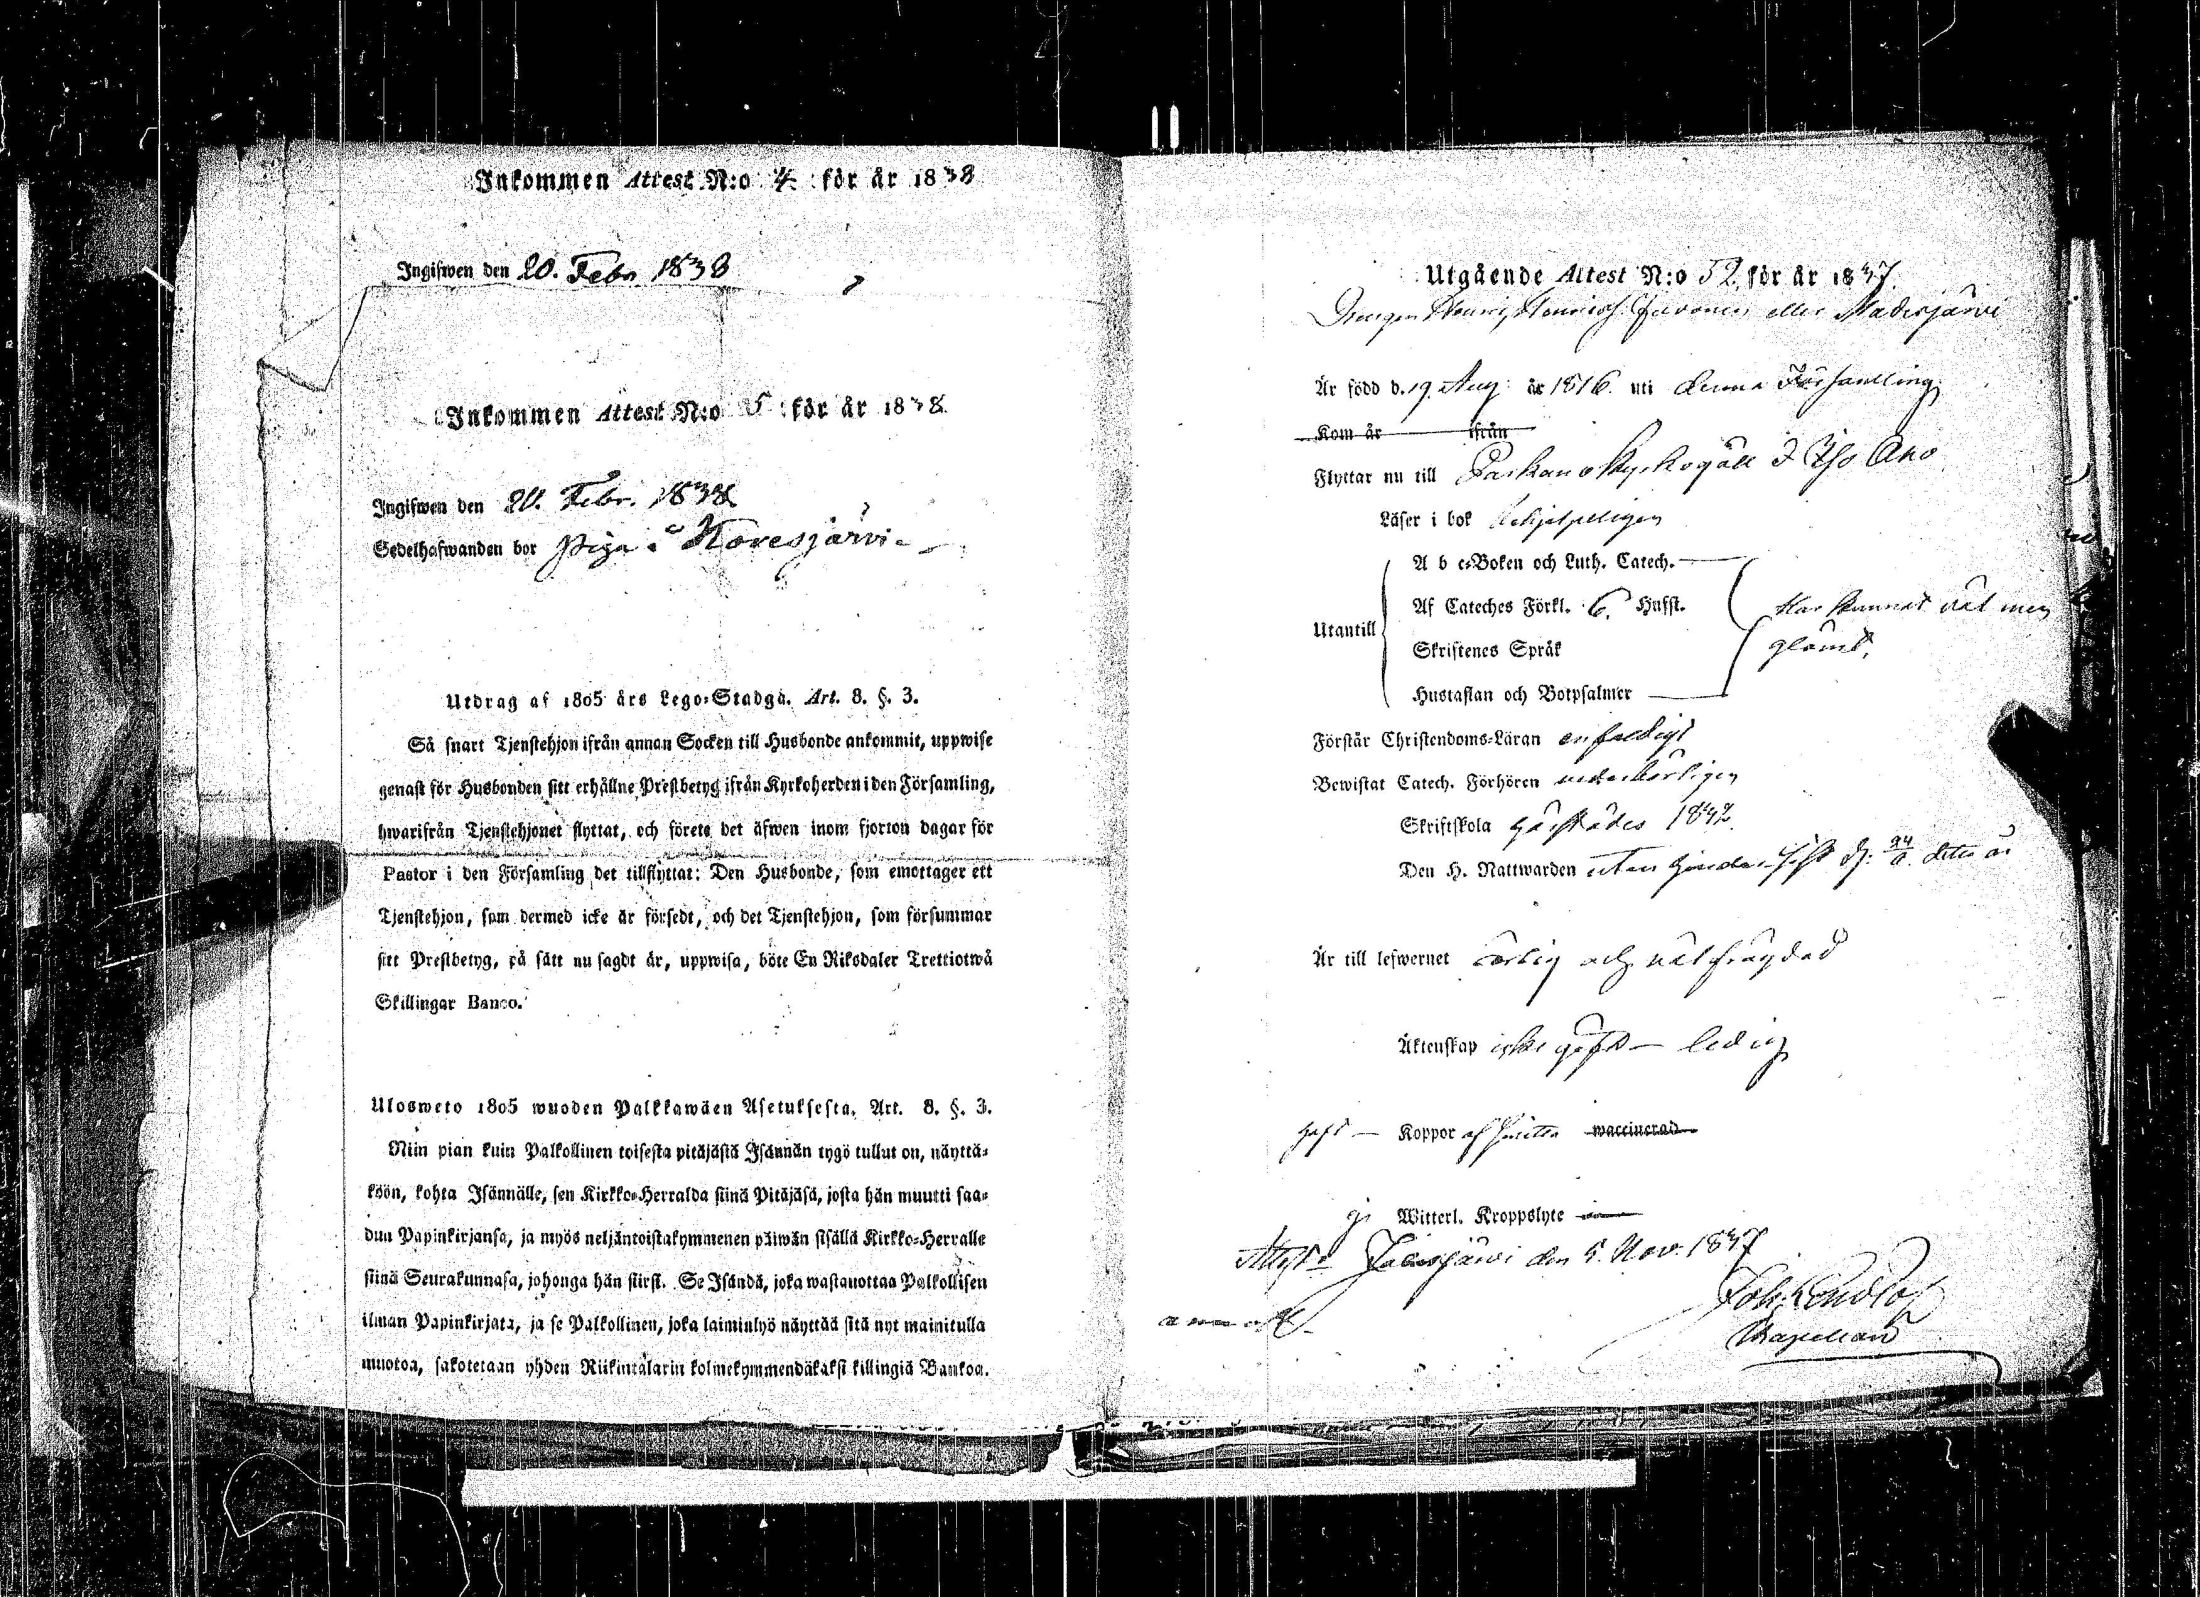 Inkommen Attest N:o 4. för år 1838
Ingifwen den 20. Febr. 1838
Inkommen Attest N:o 5 för år 1838
Ingifwen den 20. Febr. 1838
Sedelhafwanden bor Piga i Kovesjärvi
Utdrag af 1805 års Lego-Stadga. Art. 8. §. 3.
Så snart Tjenstehjon ifrån annan Socken till Husbonde ankommit, uppwise
genast för Husbonden sitt erhållne Prestbetyg ifrån Kyrkoherden i den Församling,
hwarifrån Tjenstehjonet flyttat, och förete det äfwen inom fjorton dagar för
Pastor i den Församling det tillflyttat: Den Husbonde, som emottager ett
Tjenstehjon, som dermed icke är försedt, och det Tjenstehjon, som försummar
sitt Prestbetyg, på sätt nu sagdt är, uppwisa, böte En Riksdaler Trettiotwå
Skillingar Banco.
Ulosweto 1805 wuoden Palkkawäen Asetuksesta. Art. 8. §. 3.
Niin pian kuin Palkollinen toisesta pitäjästä Isännän tygö tullut on, näyttä-
köön, kohta Isännälle, sen Kirkko-Herralda siinä Pitäjäsä, josta hän muutti saa-
dun Papinkirjansa, ja myös neljäntoistakymmenen päiwän sisällä Kirkko-Herralle
siinä Seurakunnasa, johonga hän siirst. Se Isändä, joka wastanottaa Palkollisen
ilman Papinkirjata, ja se Palkollinen, joka laiminlyö näyttää sitä nyt mainitulla
muotoa, sakotetaan yhden Riikintalarin kolmekymmendäkaksi killingiä Bankoa.
Utgående Attest N:o 52. för år 1837.
Drengen eller Madesjärvi
Är född d. 19. Aug. år 1816. uti denna Församling
Kom år ifrån
Flyttar nu till Parkano Kyrkogäll I Iso Aho
Läser i bok behjelpeligen
A b c-Boken och Luth. Catech.
Af Cateches Förkl. 6. Hufst. Har kunnat väl men
Utantill
Skriftenes Språk glömt,
Hustaflan och Botpsalmer
Förstår Christendoms-Läran enfaldigt
Bewistat Catech. Förhören vederbörligen
Skriftskola härstädes
Den H. Nattwarden utan hinder sist d. detta år
Är till lefwernet ärlig och väl frägdad
Äktenskap icke gift — ledig
haft — Koppor af Smitta waccinerad
ej Witterl. Kroppslyte
Attest. den 5. Nov. 1837
Joh.
Kapellan